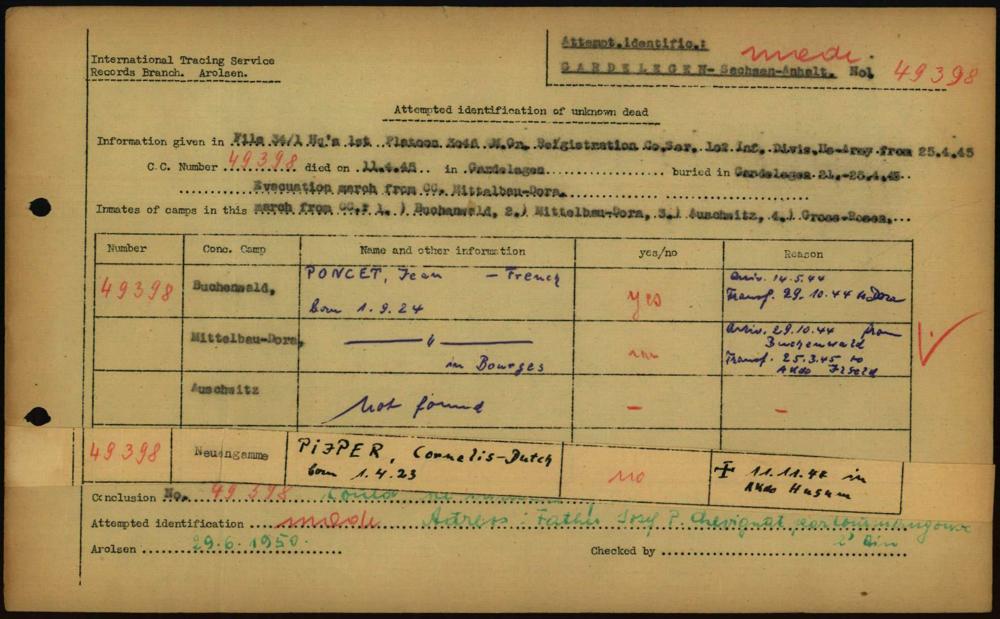 International Tracing Service
Records Branch. Arolsen.
Attempt.identific.: made.
GARDELEGEN-Sachsen-Anhalt. No. 49398
Attempted identification of unknown dead
Information given in File 34/1 Hq's 1st Platoon 3046 Gr. Registration Co. Ser. 102 Inf. Divis. Us-Army from 25.4.45
C.C. Number 49398 died on 11.4.45 in Gardelegen buried in Gardelegen 21.-25.4.45
Evacuation march from CC. Mittelbau-Dora.
Inmates of camps in this march from CC.: 1.) Buchenwald, 2.) Mittelbau-Dora, 3.) Auschwitz, 4.) Gross-Rosen.
Number Conc. Camp Name and other information yes/no Reason
49398 Buchenwald, PONCET, Jean - French yes Arriv. 14.5.44
born 1.9.24 Transf. 29.10.44 to Dora
Mittelbau-Dora, — " — Arriv. 29.10.44 from
Buchenwald
in Bourges Transf. 25.3.45 to
Akdo
Auschwitz not found - -
49398 Neuengamme PIJPER, Cornelis-Dutch no + 11.11.44 in
born 1.4.23 Akdo Husum
Conclusion No. 49398 could
Attempted identification made Adress: Father Josef P.
Arolsen 29.6.1950. Checked by